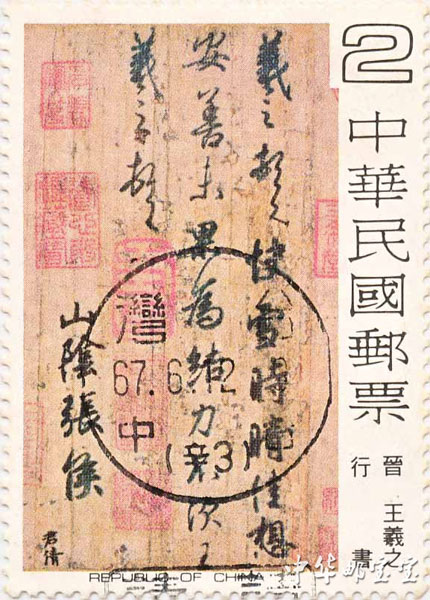 2
中華民國郵票
晉 王羲之
行書
羲之頓首快雪時晴佳想
安善未果為結力不次王
羲之頓首
山陰張侯
君倩
灣
67.6.12
中
REPUBLIC OF CHINA
中华邮宝宝